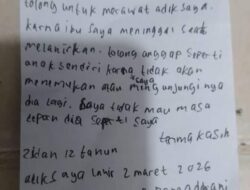 tolong untuk merawat adik saya.
karna ibu saya meninggal saat
melahirkan. tolong anggap seperti
anak sendiri karna tidak akan
menemukan atau mengunjungi nya
saya
dia lagi. saya tidak mau masa
depan dia seperti saya
terima kasih
12 tahun
adik saya lahir 2 maret 2026